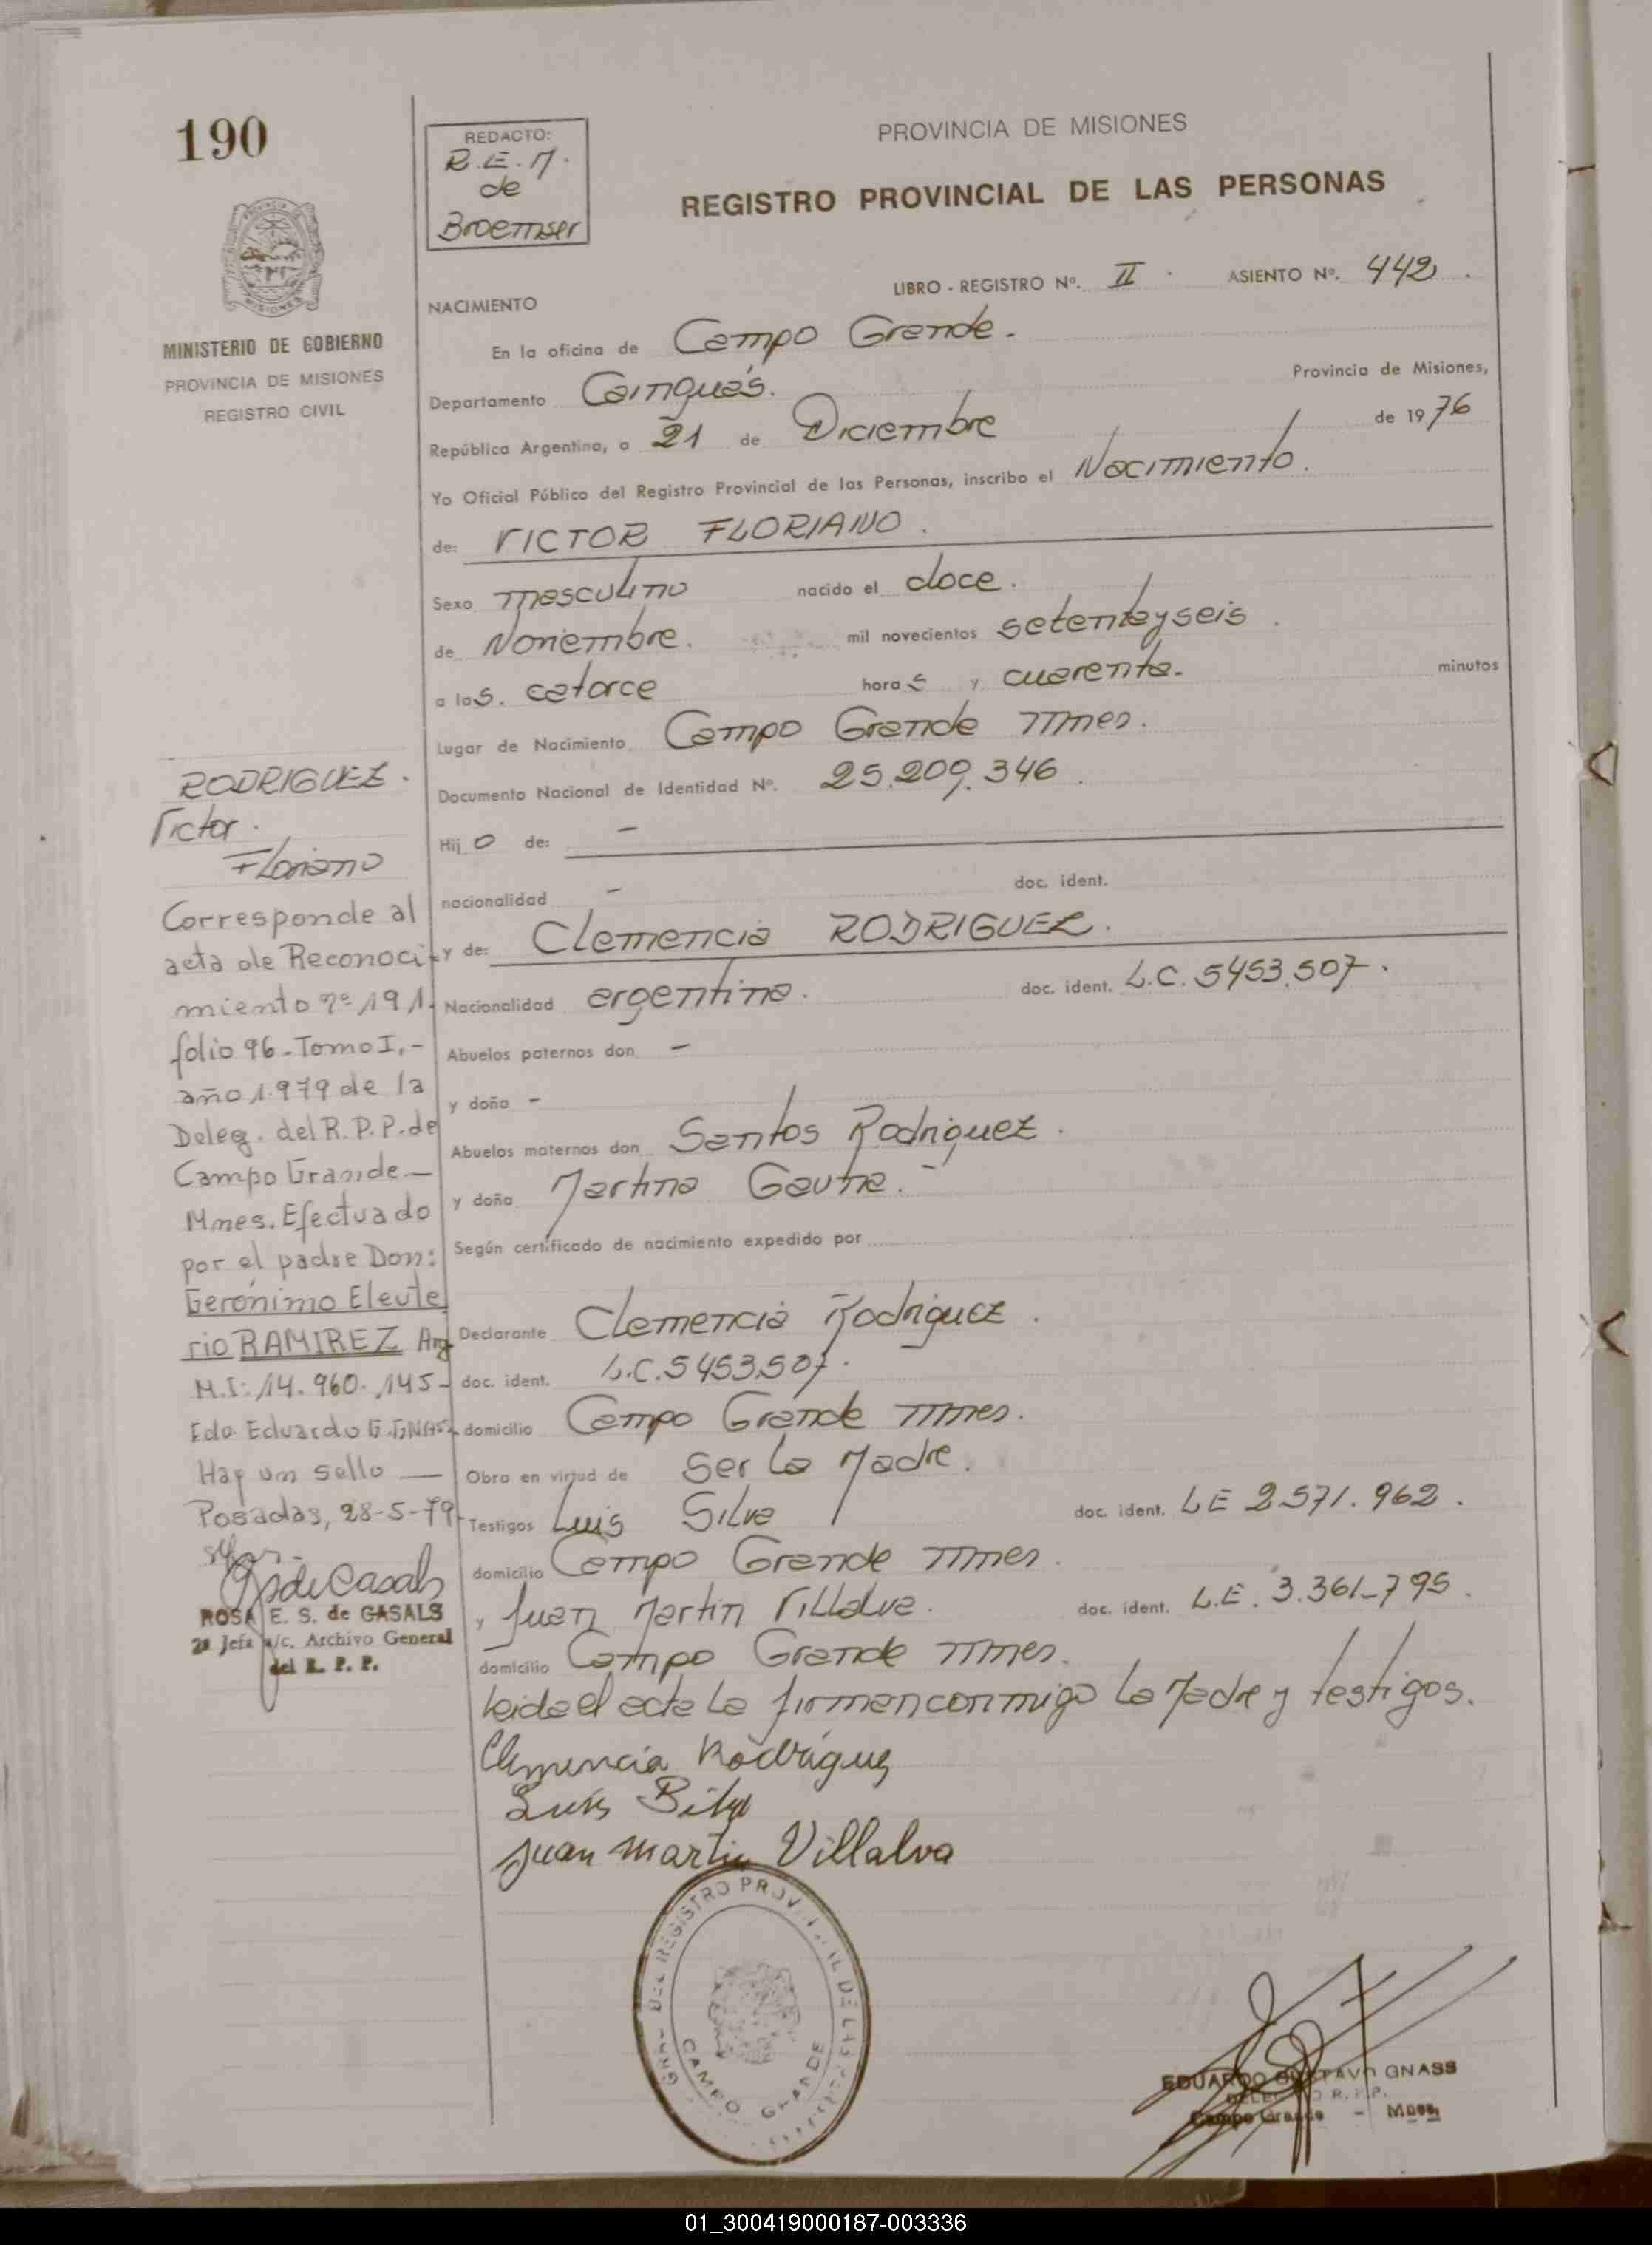 190
REDACTO:
R.E.M.
de
Broemser
PROVINCIA DE MISIONES
REGISTRO PROVINCIAL DE LAS PERSONAS
MINISTERIO DE GOBIERNO
PROVINCIA DE MISIONES
REGISTRO CIVIL
LIBRO - REGISTRO Nº. II. ASIENTO Nº. 442.
NACIMIENTO
En la oficina de Campo Grande.-
Departamento Cainguás. Provincia de Misiones,
República Argentina, a 21 de Diciembre de 1976
Yo Oficial Público del Registro Provincial de las Personas, inscribo el Nacimiento.
de: VICTOR FLORIANO.
Sexo masculino nacido el doce.
de Noviembre. mil novecientos setentayseis.
a las. catorce horas y cuarenta.- minutos
Lugar de Nacimiento Campo Grande Mnes.
Documento Nacional de Identidad Nº. 25.209.346.
Hijo de: -
nacionalidad - doc. ident.
y de: Clemencia RODRIGUEZ.
Nacionalidad argentina. doc. ident. L.C. 5453.507.
Abuelos paternos don -
y doña -
Abuelos maternos don Santos Rodriguez.
y doña Martina Gauna.
Según certificado de nacimiento expedido por
Declarante Clemencia Rodriguez.
doc. ident. L.C. 5453.507.
domicilio Campo Grande Mnes.
Obra en virtud de Ser la Madre.
Testigos Luis Silva doc. ident. LE 2571.962.
domicilio Campo Grande Mnes.
y Juan Martin Villalva. doc. ident. L.E. 3.361-795.
domicilio Campo Grande Mnes.
Leida el acta la firman conmigo la Madre y testigos.
Clemencia Rodriguez
Luis Silva
Juan Martin Villalva
RODRIGUEZ.
Victor.
Floriano
Corresponde al
acta de Reconoci-
miento nº 191-
folio 96-Tomo I.-
año 1.979 de la
Deleg. del R.P.P. de
Campo Grande.-
Mnes. Efectuado
por el padre Don:
Gerónimo Eleute
rio RAMIREZ Arg
M.I: 14.960.145-
Edo. Eduardo G. GNASS
Hay un sello -
Posadas, 28-5-79-
ROSA E. S. de CASALS
2ª Jefa a/c. Archivo General
del R. P. P.
DEL REGISTRO PROVINCIAL DE LAS PERSONAS
CAMPO GRANDE
EDUARDO GUSTAVO GNASS
DELEGADO R.P.P.
Campo Grande - Mnes.
01_300419000187-003336